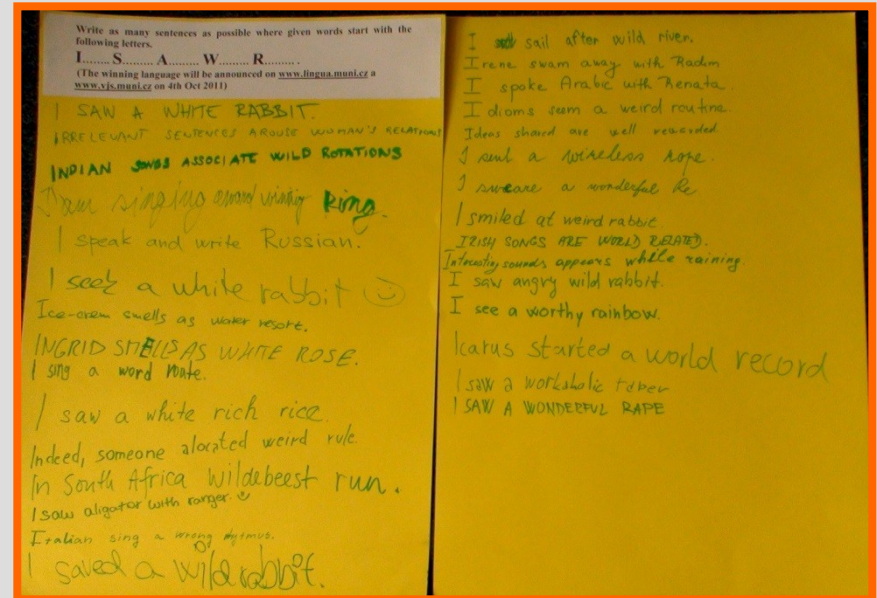 Write as many sentences as possible where given words start with the
following letters.
I........ S........ A........ W........ R......... .
(The winning language will be announced on www.lingua.muni.cz a
www.vjs.muni.cz on 4th Oct 2011)
I SAW A WHITE RABBIT.
IRRELEVANT SENTENCES AROUSE WOMAN'S RELATIONS
INDIAN SONGS ASSOCIATE WILD ROTATIONS
I am singing award winning
I speak and write Russian.
I seek a white rabbit ☺
Ice-cream smells as water resort.
INGRID SMELLS AS WHITE ROSE.
I sing a word
I saw a white rich rice.
Indeed, someone alocated weird rule.
In South Africa wildebeest run.
I saw aligator with ranger. ☺
Italian sing a wrong
I saved a wild rabbit.
I sail after wild river.
Irene swam away with Radim
I spoke Arabic with Renata.
Idioms seem a weird routine.
Ideas shared are well rewarded
I sent a wireless rope.
I a wonderful
I smiled at weird rabbit
IRISH SONGS ARE WORLD RELATED.
Interesting sounds appears while raining
I saw angry wild rabbit.
I see a worthy rainbow.
Icarus started a world record
I saw a workoholic
I SAW A WONDERFUL RAPE